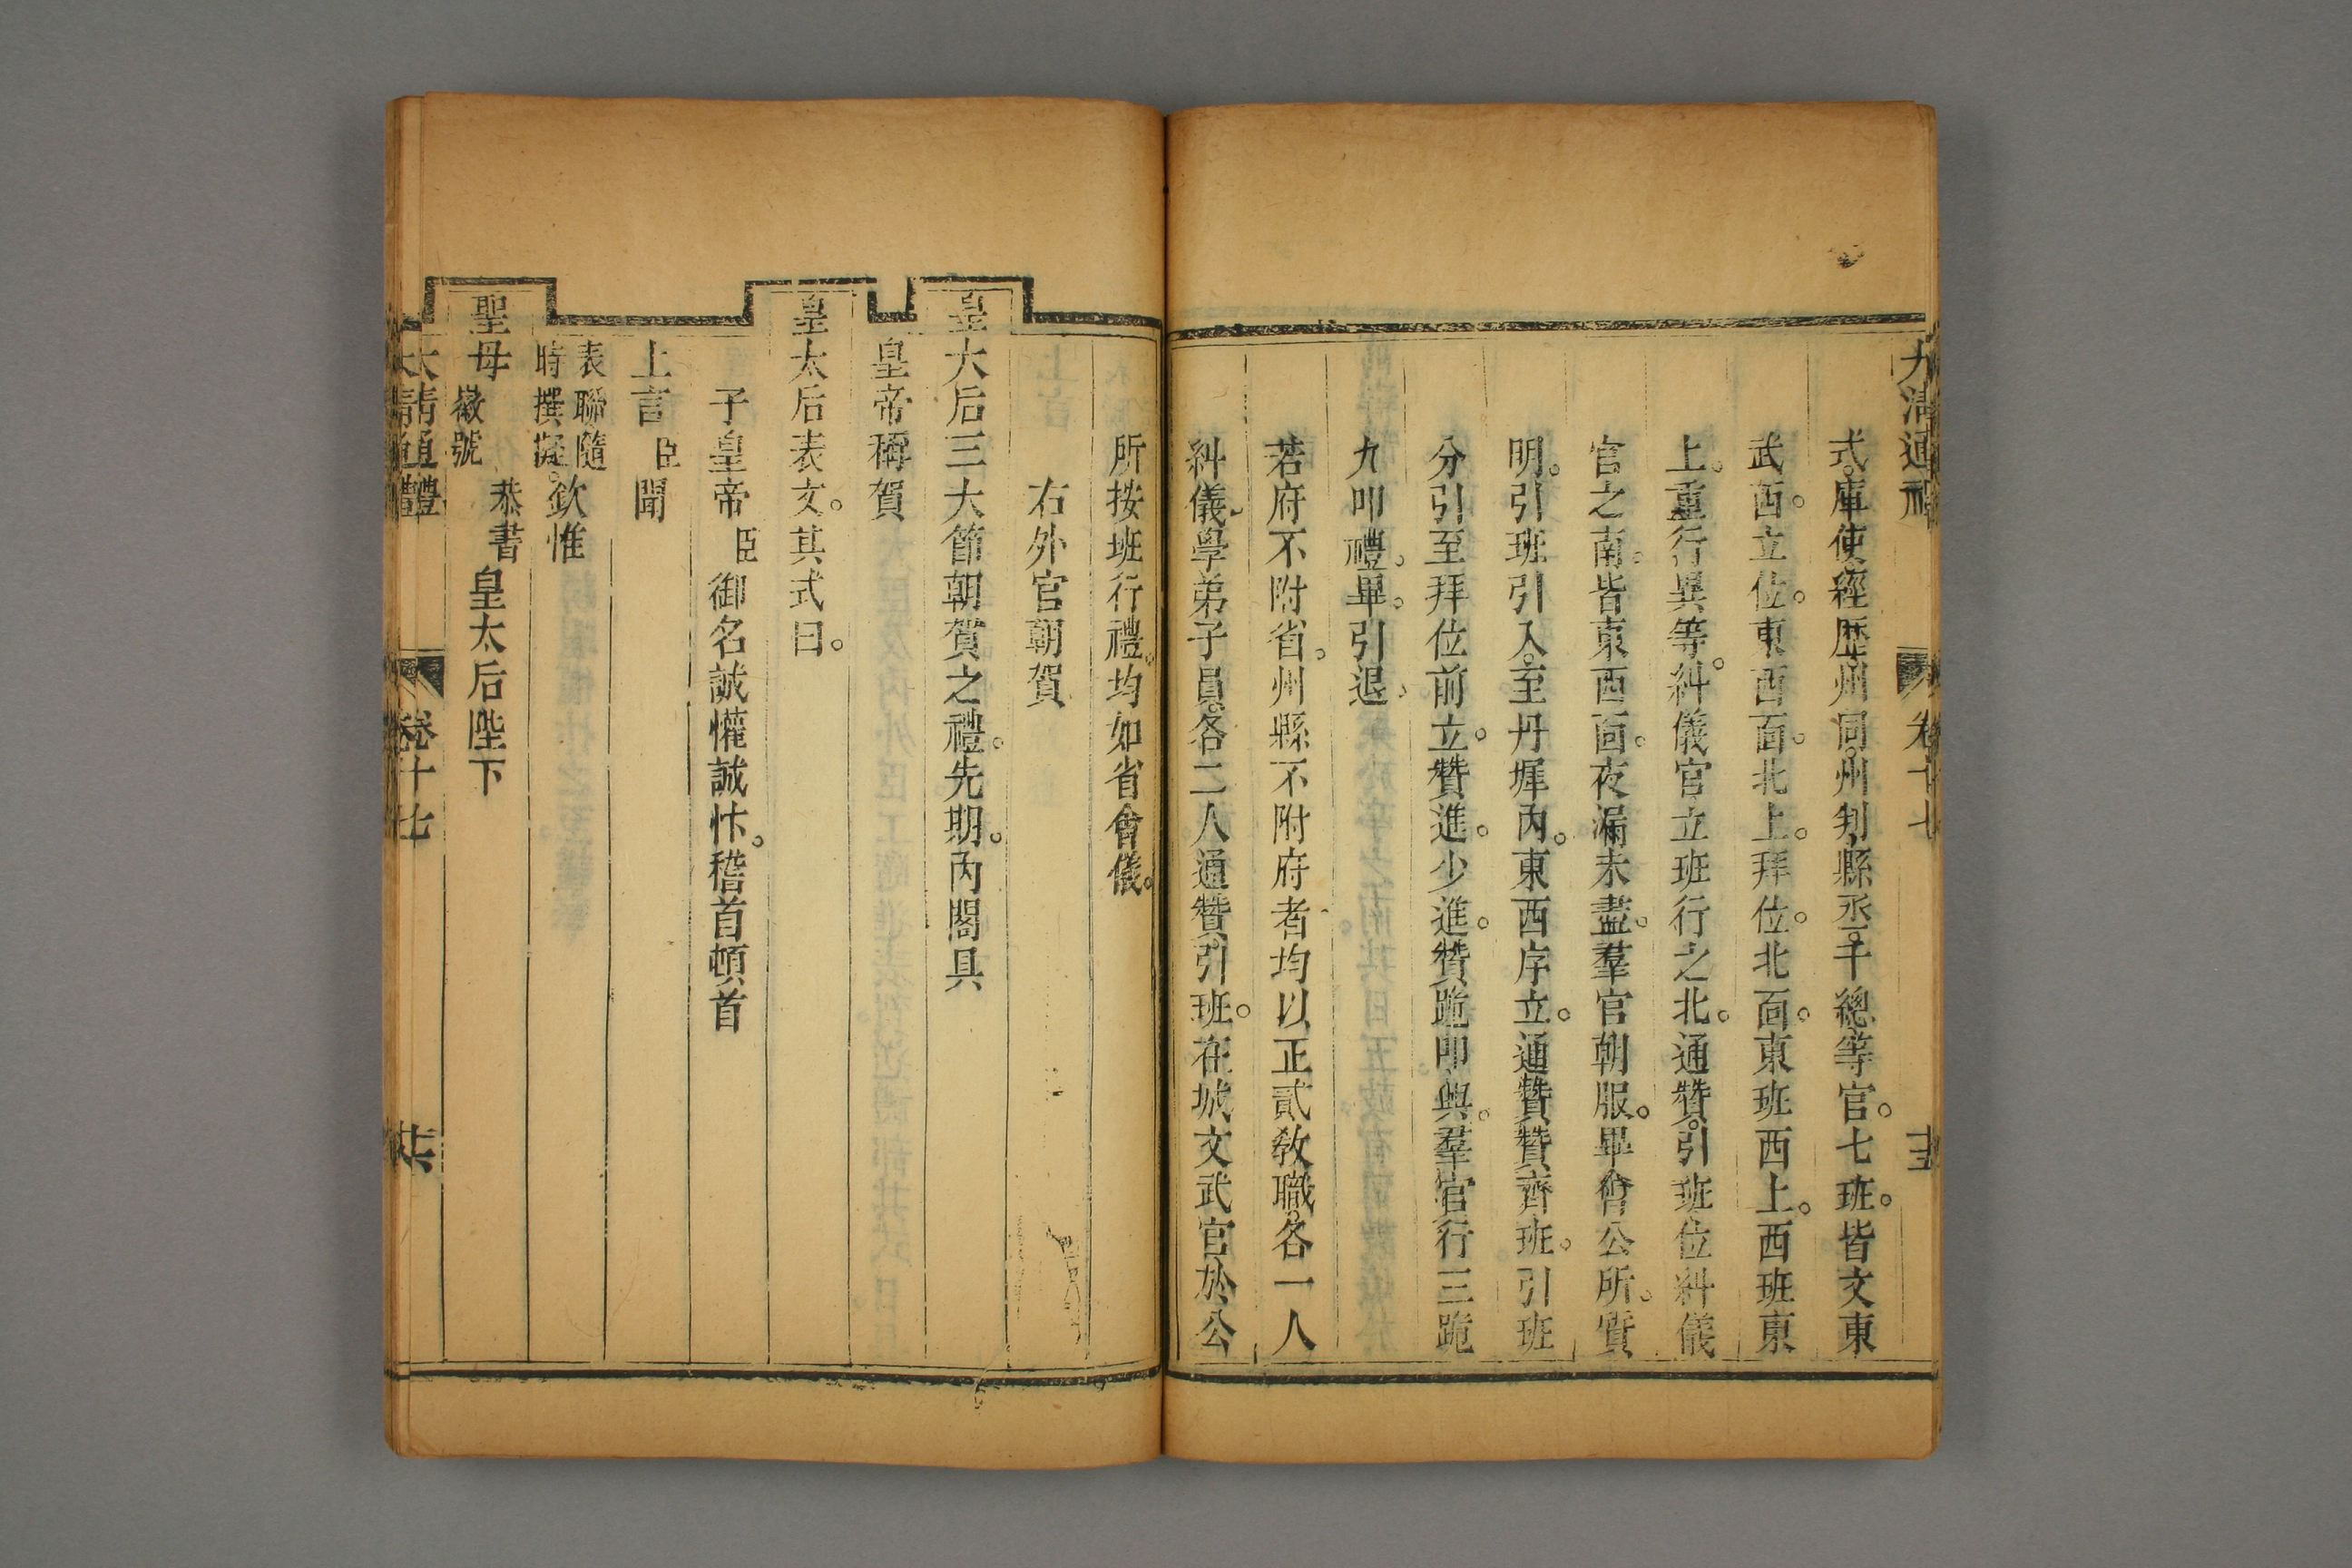 大清通禮 卷十七
式。庫使經歷州同。州判。縣丞。千總等官。七班。皆文東
武西。立位。東西面。北上。拜位。北面。東班西上。西班東
上。重行異等。糾儀官立班行之北。通贊。引班位糾儀
官之南。皆東西面。夜漏未盡。羣官朝服。畢會公所。質
明。引班引入。至丹墀內。東西序立。通贊贊齊班。引班
分引至拜位前立。贊進。少進。贊跪叩興。羣官行三跪
九叩禮。畢。引退。
若府不附省。州縣不附府者均以正貳教職。各一人
糾儀。學弟子員。各二人通贊。引班。在城文武官於公
所按班行禮。均如省會儀。
右外官朝賀
皇太后三大節朝賀之禮。先期。內閣具
皇帝稱賀
皇太后表文。其式曰。
子皇帝臣御名誠懽誠忭。稽首頓首
上言臣聞
表聯隨時撰擬。欽惟
聖母徽號恭書皇太后陛下
大清通禮 卷十七 廿六